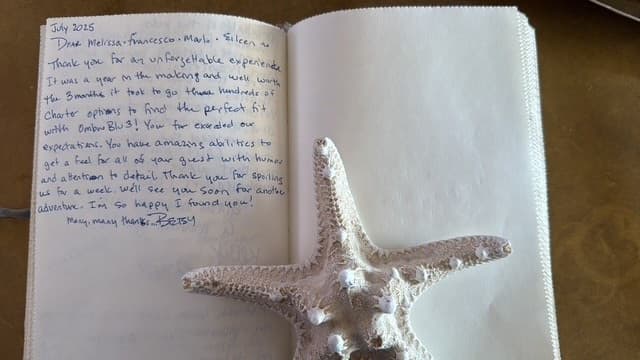 July 2025
Dear Melissa · Francesco · Mark · Eileen ~
Thank you for an unforgettable experience
It was a year in the making and well worth
the 3 months it took to go through hundreds of
charter options to find the perfect fit
with Ombre Blu 3! You far exceeded our
expectations. You have amazing abilities to
get a feel for all of your guest with humor
and attention to detail. Thank you for spoiling
us for a week. We'll see you soon for another
adventure. I'm so happy I found you!
many, many thanks... BETSY